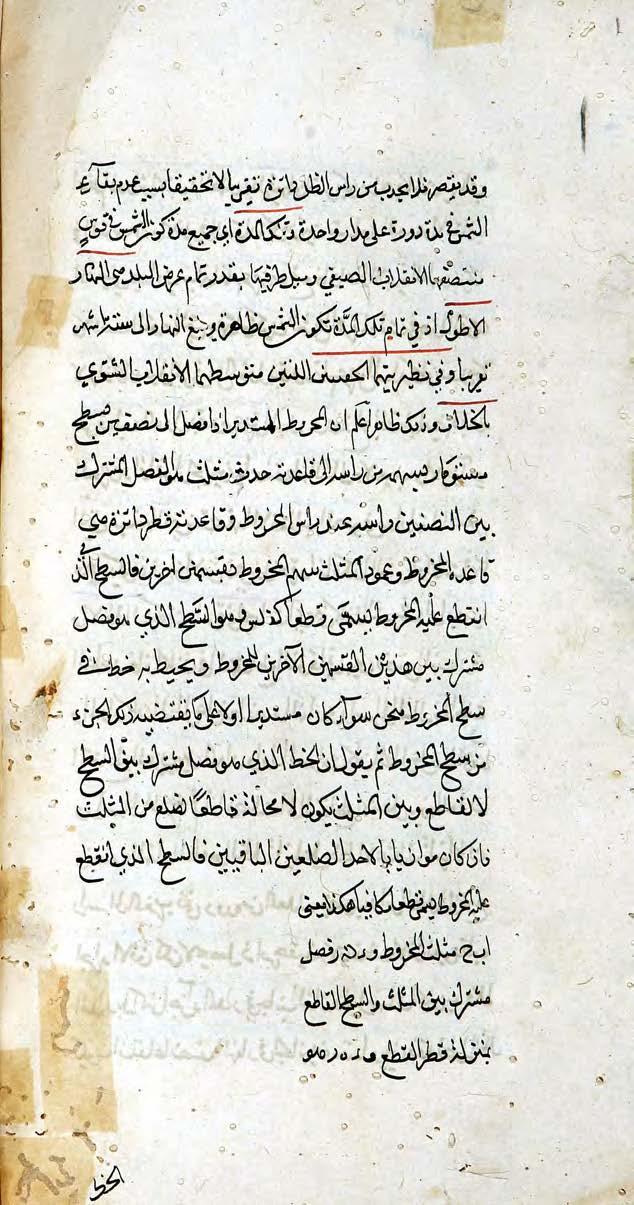 وقد يقصر فلا يحدث من راس الظل دائرة تقريبا لا تحقيقا بسبب عدم بقآء
الشمس في مدة دورة على مدار واحدة وتلك المدة اي جميع مدة كون الشمس في قوس
منتصفها الانقلاب الصيفي وميل طرفيها بقدر تمام عرض البلد هي النهار
الاطول اذ في تمام تلك المدة تكون الشمس ظاهرة ويبلغ النهار الى ستة اشهر
تقريبا وفي نظيرتيهما متوسطهما الانقلاب الشتوي
بالخلاف وذلك ظاهر اعلم ان المخروط المستدير اذا فصل الى نصفين بسطح
مستو مار بسهمه من راسه الى قاعدته حدث مثلث هو الفصل المشترك
بين النصفين راسه عند راس المخروط وقاعدته قطر دائرة هي
قاعدة المخروط وعمود المثلث سهم المخروط بقسمين اخرين فالسطح الذي
انقطع عليه المخروط يسمى قطعا وهو السطح الذي هو فصل
مشترك بين هذين القسمين الآخرين للمخروط ويحيط به خط في
سطح المخروط منحن سوآء كان مستديرا اولا على ما يقتضيه ذلك الجزء
من سطح المخروط ثم يقول ان الخط الذي هو فصل مشترك بين السطح
القاطع وبين المثلث يكون لا محالة قاطعًا لضلع من المثلث
فان كان موازيا لاحد الضلعين الباقيين فالسطح الذي انقطع
عليه المخروط يسمى قطعا مكافيا هكذا يعني
ا ب ح مثلث المخروط و فصل
مشترك بين المثلث والسطح القاطع
بمنزلة قطر القطع و هو
الخط